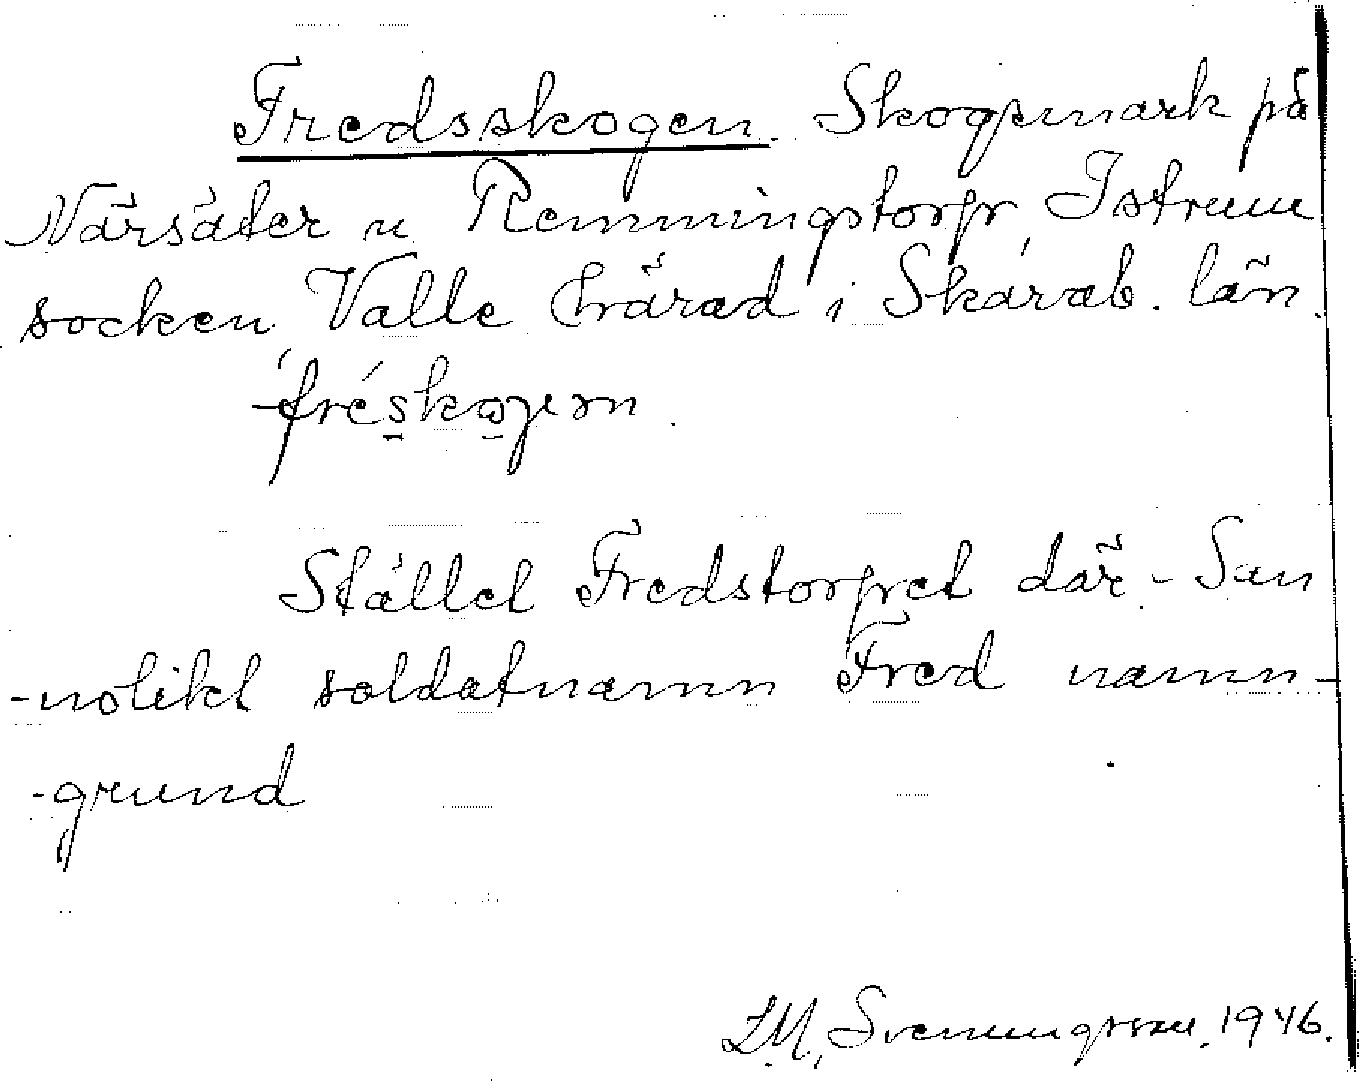 Fredsskogen. Skogsmark på
Närsäter u Remmingstorp, Istrum
socken Valle härad i Skarab. län.
fréskojen.
Stället Fredstorpet där - San
-nolikt soldatnamn Fred namn-
-grund
L.M. Svenungsson. 1946.